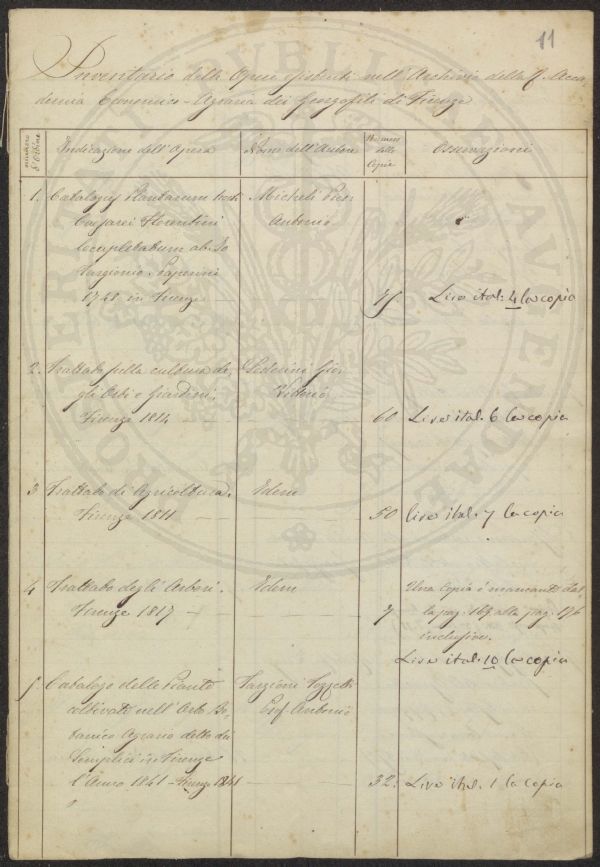 11
Inventario delle Opere esistenti nell'Archivio della R. Acca-
demia Economico-Agraria dei Georgofili di Firenze
numero d'Ordine
Indicazione dell'Opera
Nome dell'Autore
Numero delle Copie
Osservazioni
1. Catalogus Plantarum Horti
Caesarei Florentini
locupletatum ab Jo
Targionio
1748 in Firenze
Micheli Pier
Antonio
Lire ital: 4 la copia
2. Trattato della cultura de-
gli Orti e Giardini,
Firenze 1814
60
Lire ital. 6 la copia
3 Trattato di Agricoltura.
Firenze 1811
Idem
50
Lire ital. 7 la copia
4 Trattato degli Arberi.
Firenze 1817
Idem
7
Una copia è mancante dal-
la pag. 169 alla pag. 176
inclusive.
Lire ital. 10 la copia
5. Catalogo delle Piante
coltivate nell'Orto Bo-
tanico Agrario detto dei
Semplici in Firenze
l'Anno 1841 - Firenze 1841
Targioni Tozzetti
Prof. Antonio
32.
Lire ital. 1 la copia
PROSPERITATI PUBLICAE AUGENDAE